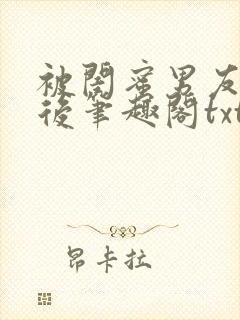 被閣蜜男友
後筆趣閣txt
昂卡拉